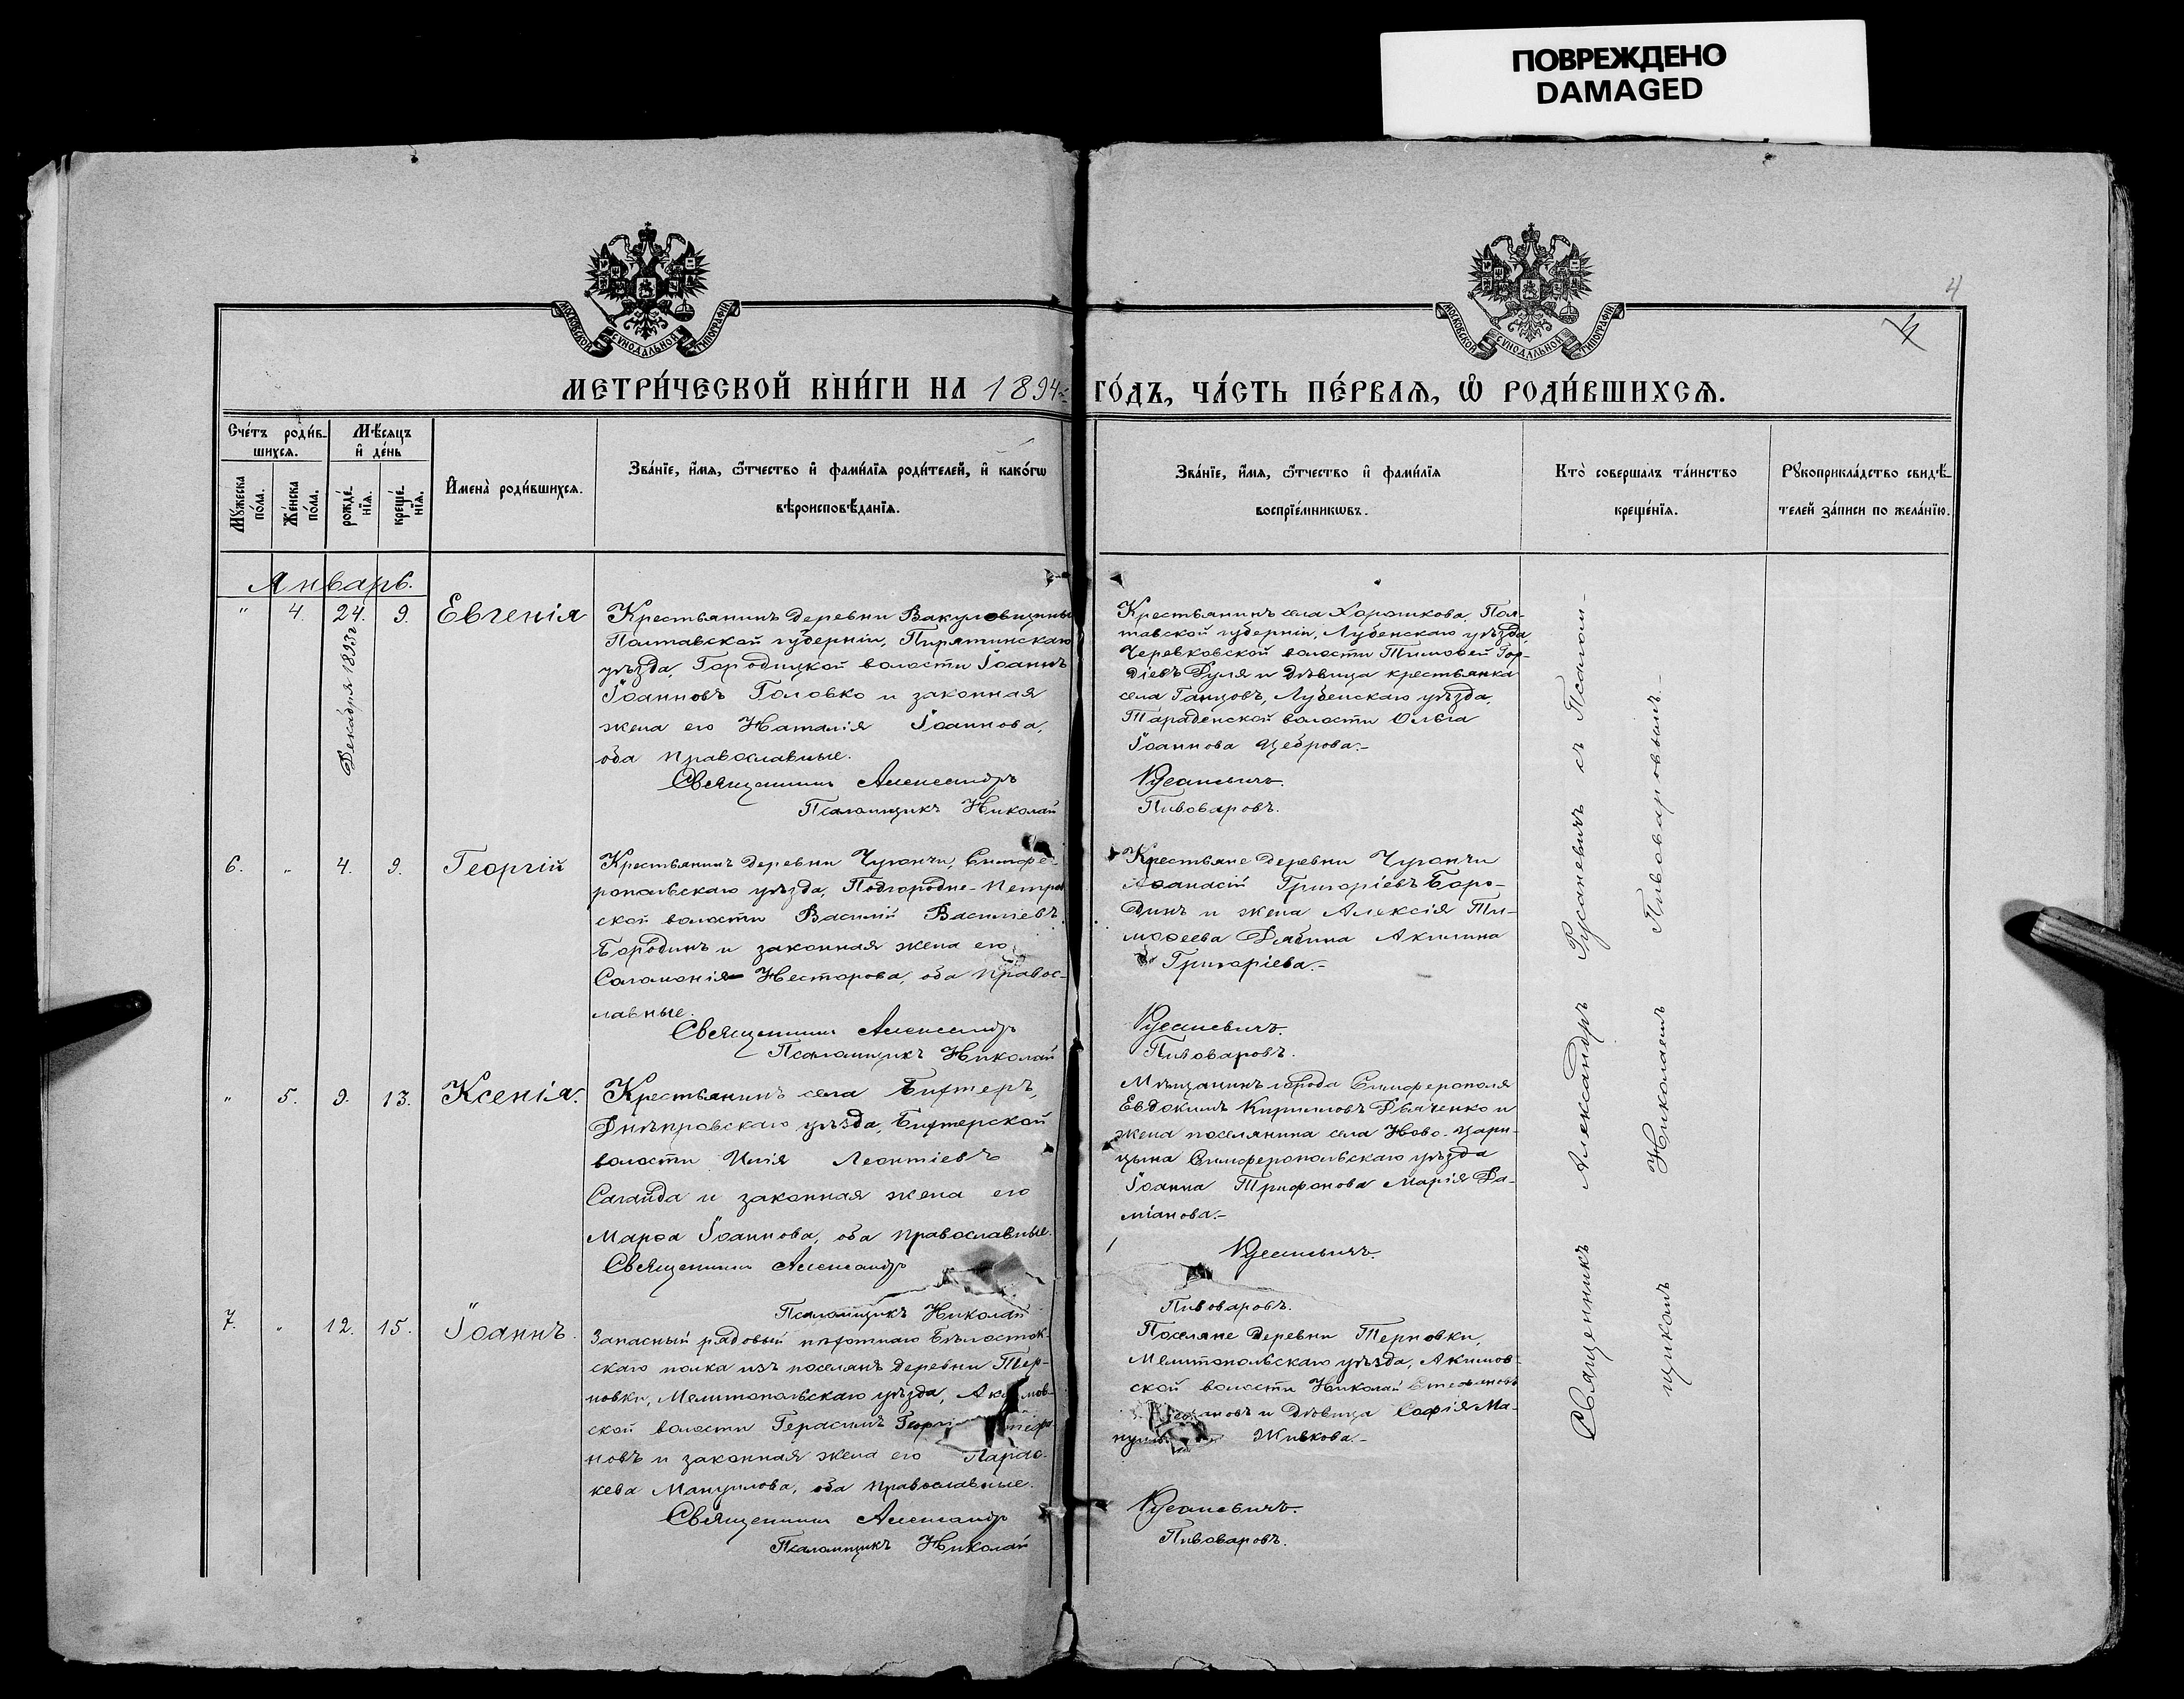 ПОВРЕЖДЕНО
DAMAGED
4
4
МОСКОВСКОЙ СѴНОДАЛЬНОЙ ТИПОГРАФІИ
МОСКОВСКОЙ СѴНОДАЛЬНОЙ ТИПОГРАФІИ
МЕТРИ́ЧЕСКОЙ КНИ́ГИ НА 1894 ГО́ДЪ, ЧА́СТЬ ПЕ́РВАѦ, Ѡ҆ РОДИ́ВШИХСѦ.
Сче́тъ роди́в-
шихсѧ.
Мꙋ́жеска
по́ла.
Же́нска
по́ла.
Мѣ́сѧцъ
и҆ де́нь
рожде́-
нїѧ.
креще́-
нїѧ.
И҆мена̀ роди́вшихсѧ.
Зва́нїе, и҆́мѧ, ѻ҆́тчество и҆ фами́лїѧ роди́телей, и҆ како́гѡ
вѣроисповѣ́данїѧ.
Зва́нїе, и҆́мѧ, ѻ҆́тчество и҆ фами́лїѧ
воспрїе́мникѡвъ.
Кто̀ соверша́лъ та́инство
креще́нїѧ.
Рꙋкоприкла́дство свидѣ́-
телей за́писи по жела́нїю.
Январь.
" 4. 24. 9. Евгенія
Декабря 1893 г.
Крестьянинъ деревни Вакуловщины
Полтавской губерніи, Пирятинскаго
уѣзда, Городицкой волости Іоаннъ
Іоанновъ Головко и законная
жена его Наталія Іоаннова,
оба православные.
Священникъ Александръ
Псаломщикъ Николай
Крестьянинъ села Хорошкова, Пол-
тавской губерніи, Лубенскаго уѣзда,
Черевковской волости Тимоѳей Гор-
діевъ Дуля и дѣвица крестьянка
села Ганцовъ, Лубенскаго уѣзда,
волости Ольга
Іоаннова Цеброва.-
Русаневичъ.
Пивоваровъ.
6. " 4. 9. Георгій
Крестьянинъ деревни Чуюнчи, Симфе-
ропольскаго уѣзда, Подгородне-Петров
ской волости Василій Василіевъ
Бородинъ и законная жена его
Соломонія Несторова, оба правос-
лавные.
Священникъ Александръ
Псаломщикъ Николай
Крестьяне деревни Чуюнчи
Аѳанасій Григоріевъ Боро-
динъ и жена Алексія Ти-
моѳеева Акилина
Григоріева.-
Русаневичъ.
Пивоваровъ.
" 5. 9. 13. Ксенія.
Крестьянинъ села Бехтеръ,
Днѣпровскаго уѣзда, Бехтерской
волости Илія Леонтіевъ
Сагайда и законная жена его
Марѳа Іоаннова, оба православные.
Священникъ Александръ
Псаломщикъ Николай
Мѣщанинъ города Симферополя
Евдокимъ Кирилловъ Дьяченко и
жена поселянина села Ново-Цари-
цына Симферопольскаго уѣзда
Іоанна Трифонова Марія Да-
міанова.-
Русаневичъ.
Пивоваровъ.
7. " 12. 15. Іоаннъ.
Запасный рядовый пѣхотнаго Бѣлосток-
скаго полка изъ поселянъ деревни Тер-
новки, Мелитопольскаго уѣзда, Акимов-
ской волости Герасимъ
новъ и законная жена его Парас-
кева Мануилова, оба православные.
Священникъ Александръ
Псаломщикъ Николай
Поселяне деревни Терновки,
Мелитопольскаго уѣзда, Акимов-
ской волости Николай Стефановъ
и дѣвица Софія Ма-
Живкова.-
Русаневичъ.
Пивоваровъ.
Священникъ Александръ Русаневичъ съ Псалом-
щикомъ Николаемъ Пивоваровымъ.-